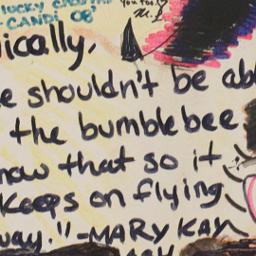 LUCKY
-CANDI 08'
YOU TOO!
ically,
e shouldn't be abl
the bumblebee
now that so it
Keeps on flying
way."-MARY KAY